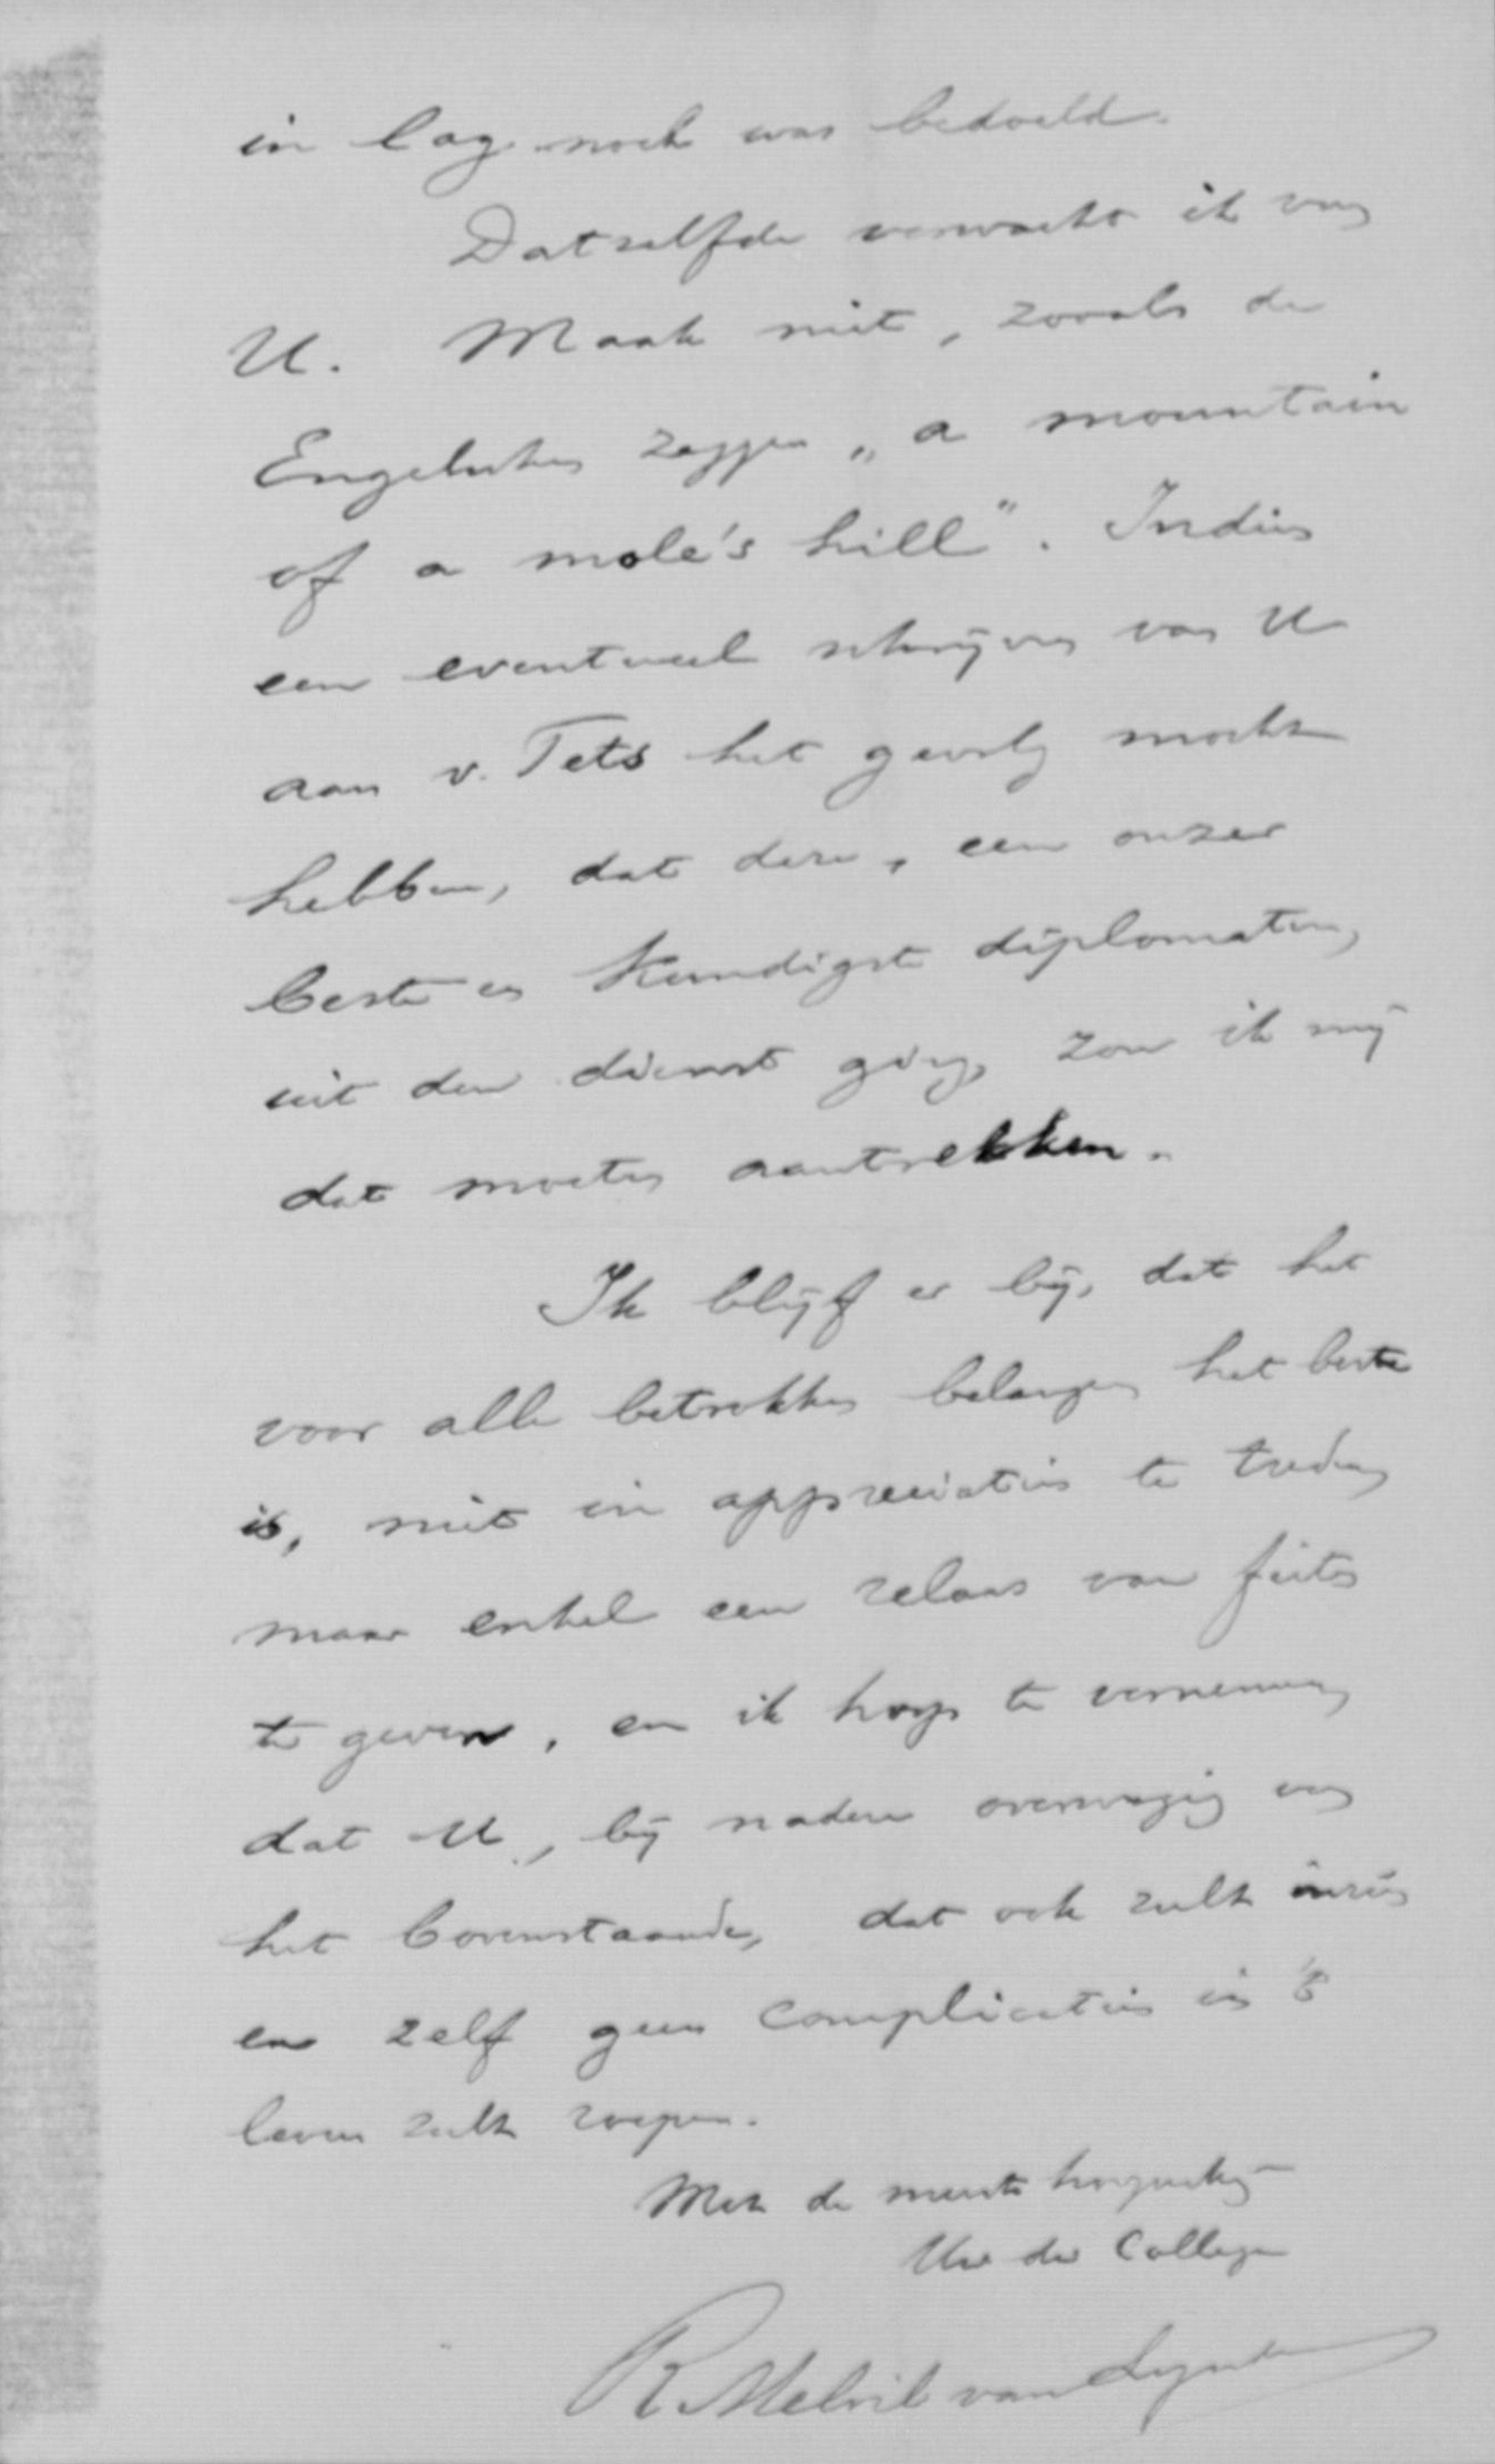 in lag noch was bedoeld.
Datzelfde verwacht ik van
U. Maak niet, zooals de
Engelschen zeggen „a mountain
of a mole's hill". Indien
een eventueel schrijven van U
aan v. Tets het gevolg mocht
hebben, dat deze, een onzer
beste en kundigste diplomaten,
uit den dienst ging, zou ik mij
dat moeten aantrekken.
Ik blijf er bij, dat het
voor alle betrokken belangen het beste
is, niet in appreciaties te treden
maar enkel een relaas van feiten
te geven, en ik hoop te vernemen
dat U, bij nadere overweging van
het bovenstaande, dat ook zult inzien
en zelf geen complicaties in 't
leven zult roepen.
Met de meeste hoogachtg
Uw dw Collega
R. Melvil van Lynden